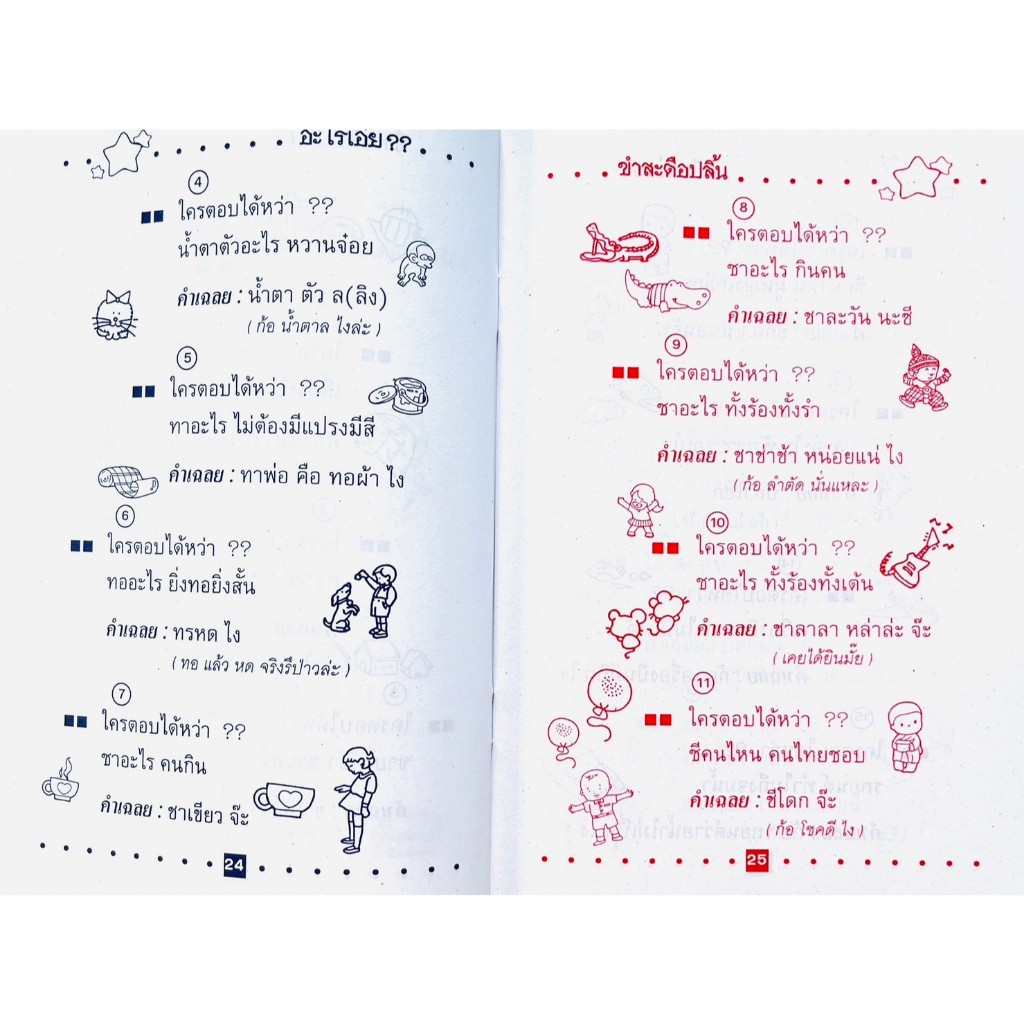 อะไรเอ่ย??
4
ใครตอบได้หว่า ??
น้ำตาตัวอะไร หวานจ๋อย
คำเฉลย : น้ำตา ตัว ล(ลิง)
( ก้อ น้ำตาล ไงล่ะ )
5
ใครตอบได้หว่า ??
ทาอะไร ไม่ต้องมีแปรงมีสี
คำเฉลย : ทาพ่อ คือ ทอผ้า ไง
6
ใครตอบได้หว่า ??
ทออะไร ยิ่งทอยิ่งสั้น
คำเฉลย : ทรหด ไง
( ทอ แล้ว หด จริงรึป่าวล่ะ )
7
ใครตอบได้หว่า ??
ชาอะไร คนกิน
คำเฉลย : ชาเขียว จ๊ะ
24
ขำสะดือปลิ้น
8
ใครตอบได้หว่า ??
ชาอะไร กินคน
คำเฉลย : ชาละวัน นะซี
9
ใครตอบได้หว่า ??
ชาอะไร ทั้งร้องทั้งรำ
คำเฉลย : ชาช่าช้า หน่อยแน่ ไง
( ก้อ ลำตัด นั่นแหละ )
10
ใครตอบได้หว่า ??
ชาอะไร ทั้งร้องทั้งเต้น
คำเฉลย : ชาลาลา หล่าล่ะ จ๊ะ
( เคยได้ยินมั๊ย )
11
ใครตอบได้หว่า ??
ชีคนไหน คนไทยชอบ
คำเฉลย : ชีโดก จ๊ะ
( ก้อ โชคดี ไง )
25